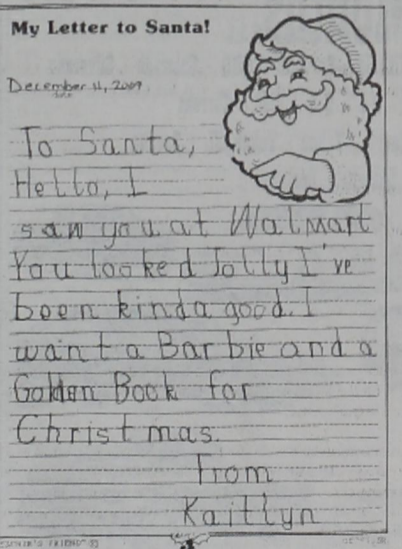 My Letter to Santa!
December 11, 2009
To Santa,
Hello, I
saw you at Walmart
You looked Jolly I've
been kinda good. I
want a Barbie and a
Golden Book for
Christmas.
From
Kaitlyn